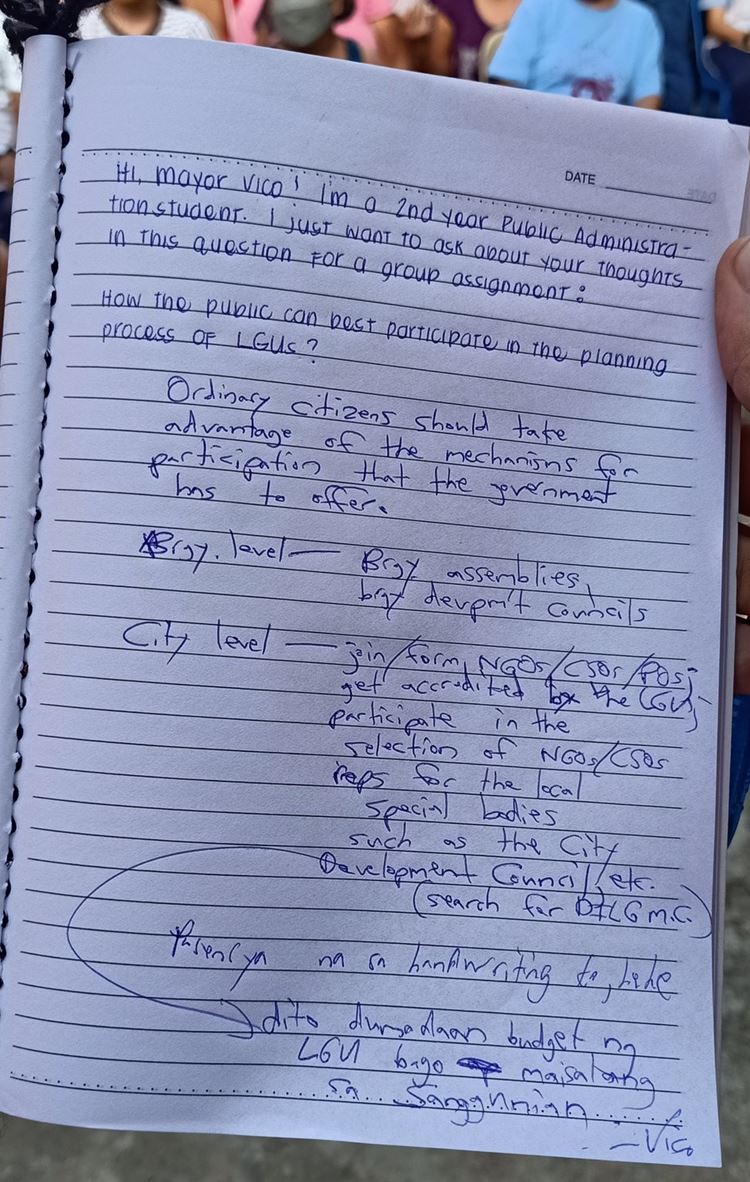 DATE
Hi, mayor Vico! I'm a 2nd year Public Administra-
tion student. I just want to ask about your thoughts
in this question for a group assignment:
How the public can best participate in the planning
process of LGUs?
Ordinary citizens should take
advantage of the mechanisms for
participation that the government
has to offer.
Brgy. level — Brgy assemblies,
brgy devpm't councils
City level — join/form NGOs/CSOs/POs;
get accredited by the LGU;
participate in the
selection of NGOs/CSOs
reps for the local
special bodies
such as the City
Development Council/etc.
(search for DILG M.C.)
Pasensya na sa handwriting ko, hehe
dito dumadaan budget ng
LGU bago maisalang
sa Sanggunian
- Vico